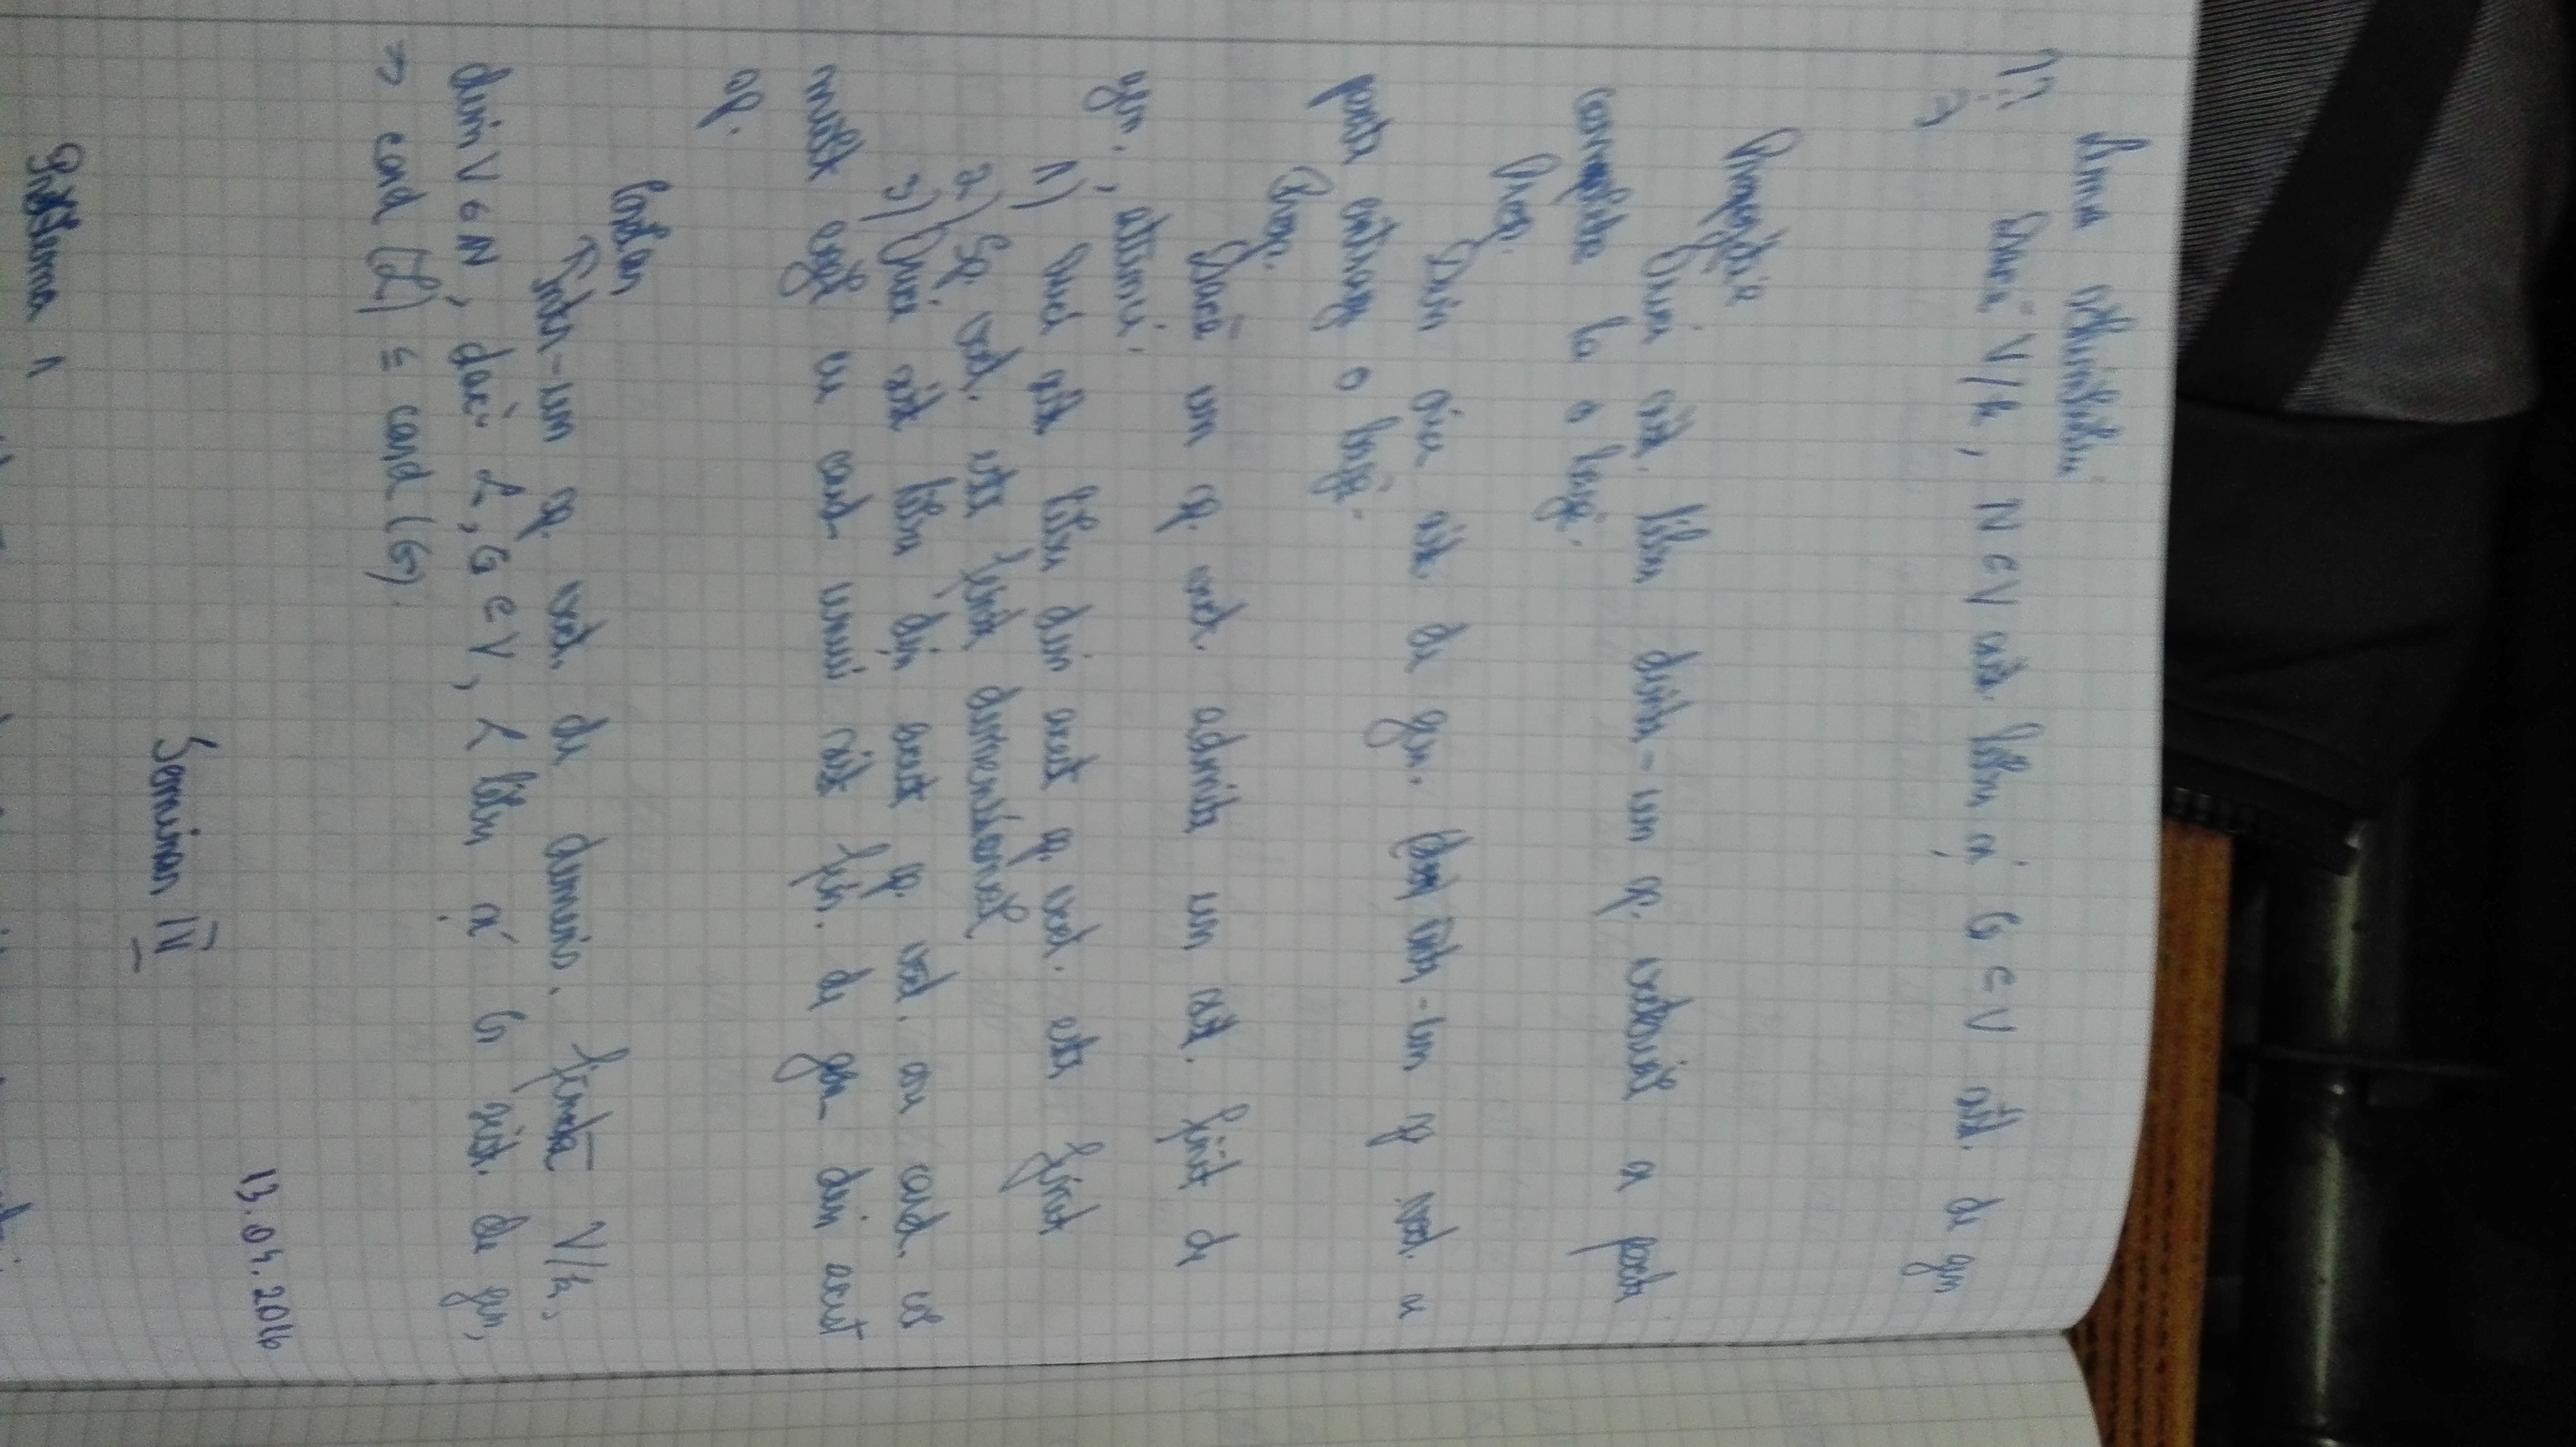 Lema schimbului
!!! Dacă V/k, N ⊂ V sist. liber și G ⊂ V sist. de gen
⇒
Propoziție
Orice sist. liber dintr-un sp. vectorial se poate
completa la o bază.
Prop.
Din orice sist. de gen. dintr-un sp. vect. se
poate extrage o bază.
Prop.
Dacă un sp. vect. admite un sist. finit de
gen., atunci:
1) orice sist. liber din acest sp. vect. este finit
2) Sp. vect. este finit dimensional
3) Orice sist. liber din acest sp. vect. are card. cel
mult egal cu card. unui sist. fin. de gen. din acest
sp.
Corolar
Într-un sp. vect. de dimens. finită V/k,
dim V ∈ N, dacă L, G ⊂ V, L liber și G sist. de gen,
⇒ card (L) ≤ card (G).
13.04.2016
Seminar IV
Problema 1